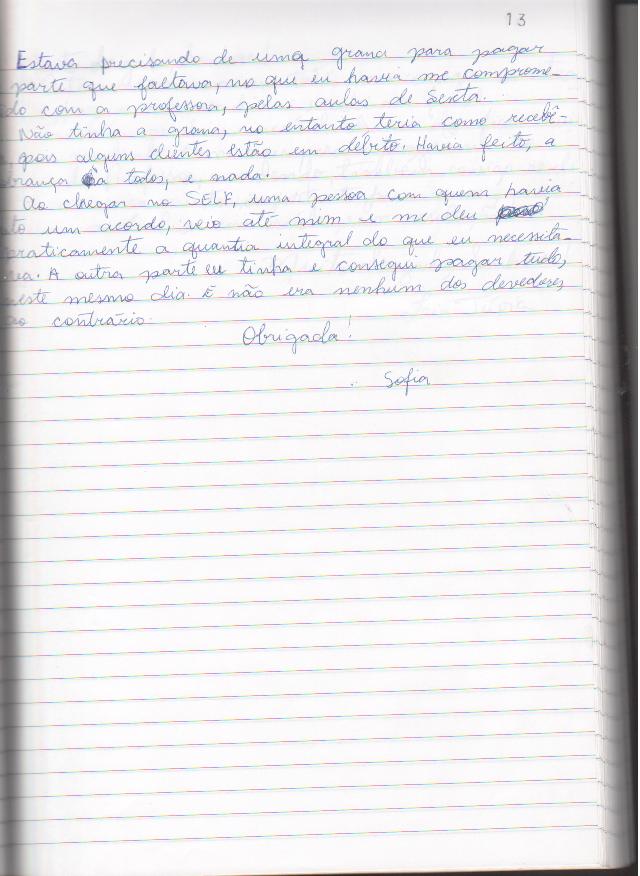 13
Estava precisando de uma grana para pagar
parte que faltava, no que eu havia me comprome-
do com a professora, pelas aulas de Sexta.
Não tinha a grana, no entanto teria como recebê-
pois alguns clientes estão em débito. Havia feito, a
brança a todos, e nada.
Ao chegar no SELF, uma pessoa com quem havia
to um acordo, veio até mim e me deu
praticamente a quantia integral do que eu necessita-
va. A outra parte eu tinha e consegui pagar tudo,
neste mesmo dia. E não era nenhum dos devedores,
ao contrário.
Obrigada!
Sofia